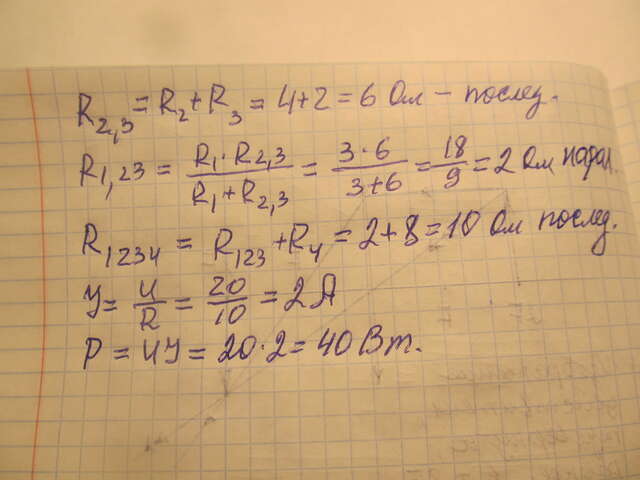 R2,3 = R2 + R3 = 4+2 = 6 Ом – послед.
R1,23 = R1·R2,3 / R1+R2,3 = 3·6 / 3+6 = 18/9 = 2 Ом парал.
R1234 = R123 + R4 = 2+8 = 10 Ом послед.
У = U/R = 20/10 = 2 А
P = UУ = 20·2 = 40 Вт.